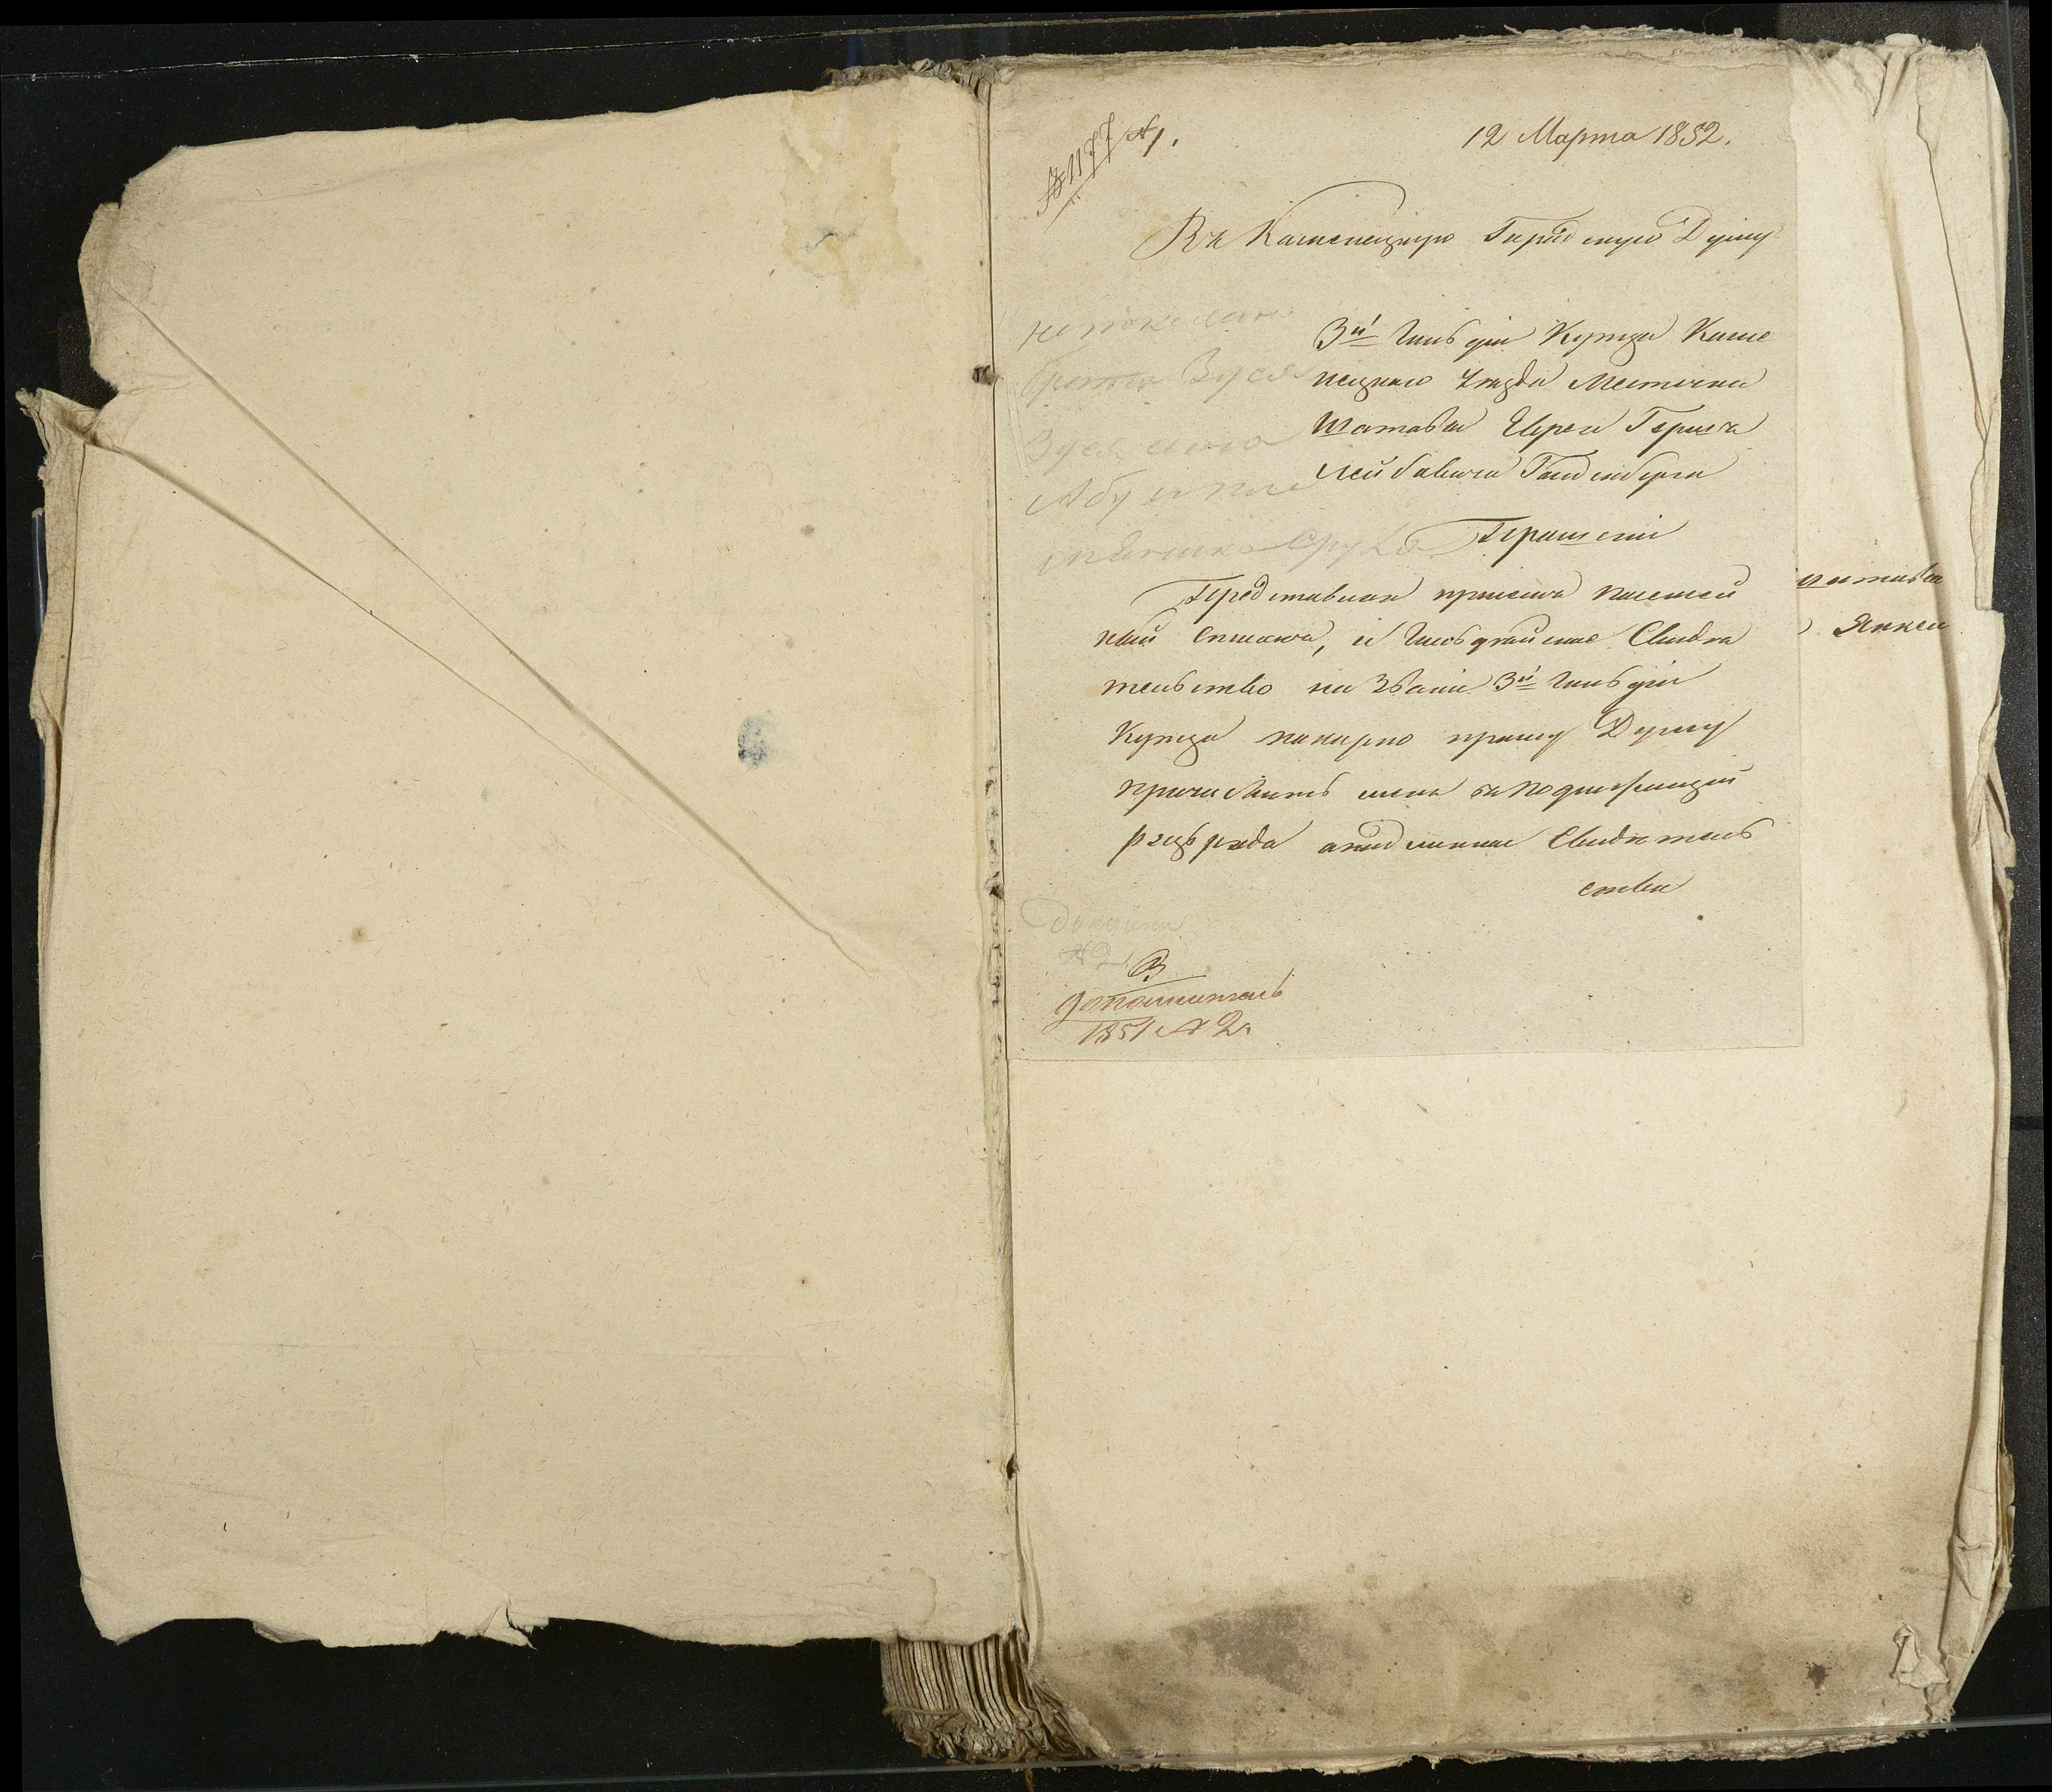 № 1177 № 1.
12 Марта 1852.
Въ Каменецкую Городскую Думу
3й Гильдіи Купца Каме
нецкаго Уезда Местечка
Шатавы Еврея Герша
Лейбовича Гольденберга
Прошеніе
Представляя присемъ посемей
ный списокъ, и Гильдейское Свиде
тельство на Званіе 3й Гильдіи
Купца покорно прошу Думу
причислить меня
разряда Свидетель
ства
непоказанъ
брата Зуся
Зуся сына
Абу
дополни
№ 2
В
дополнитель
1851 № 2.
Шатавы
Янкел